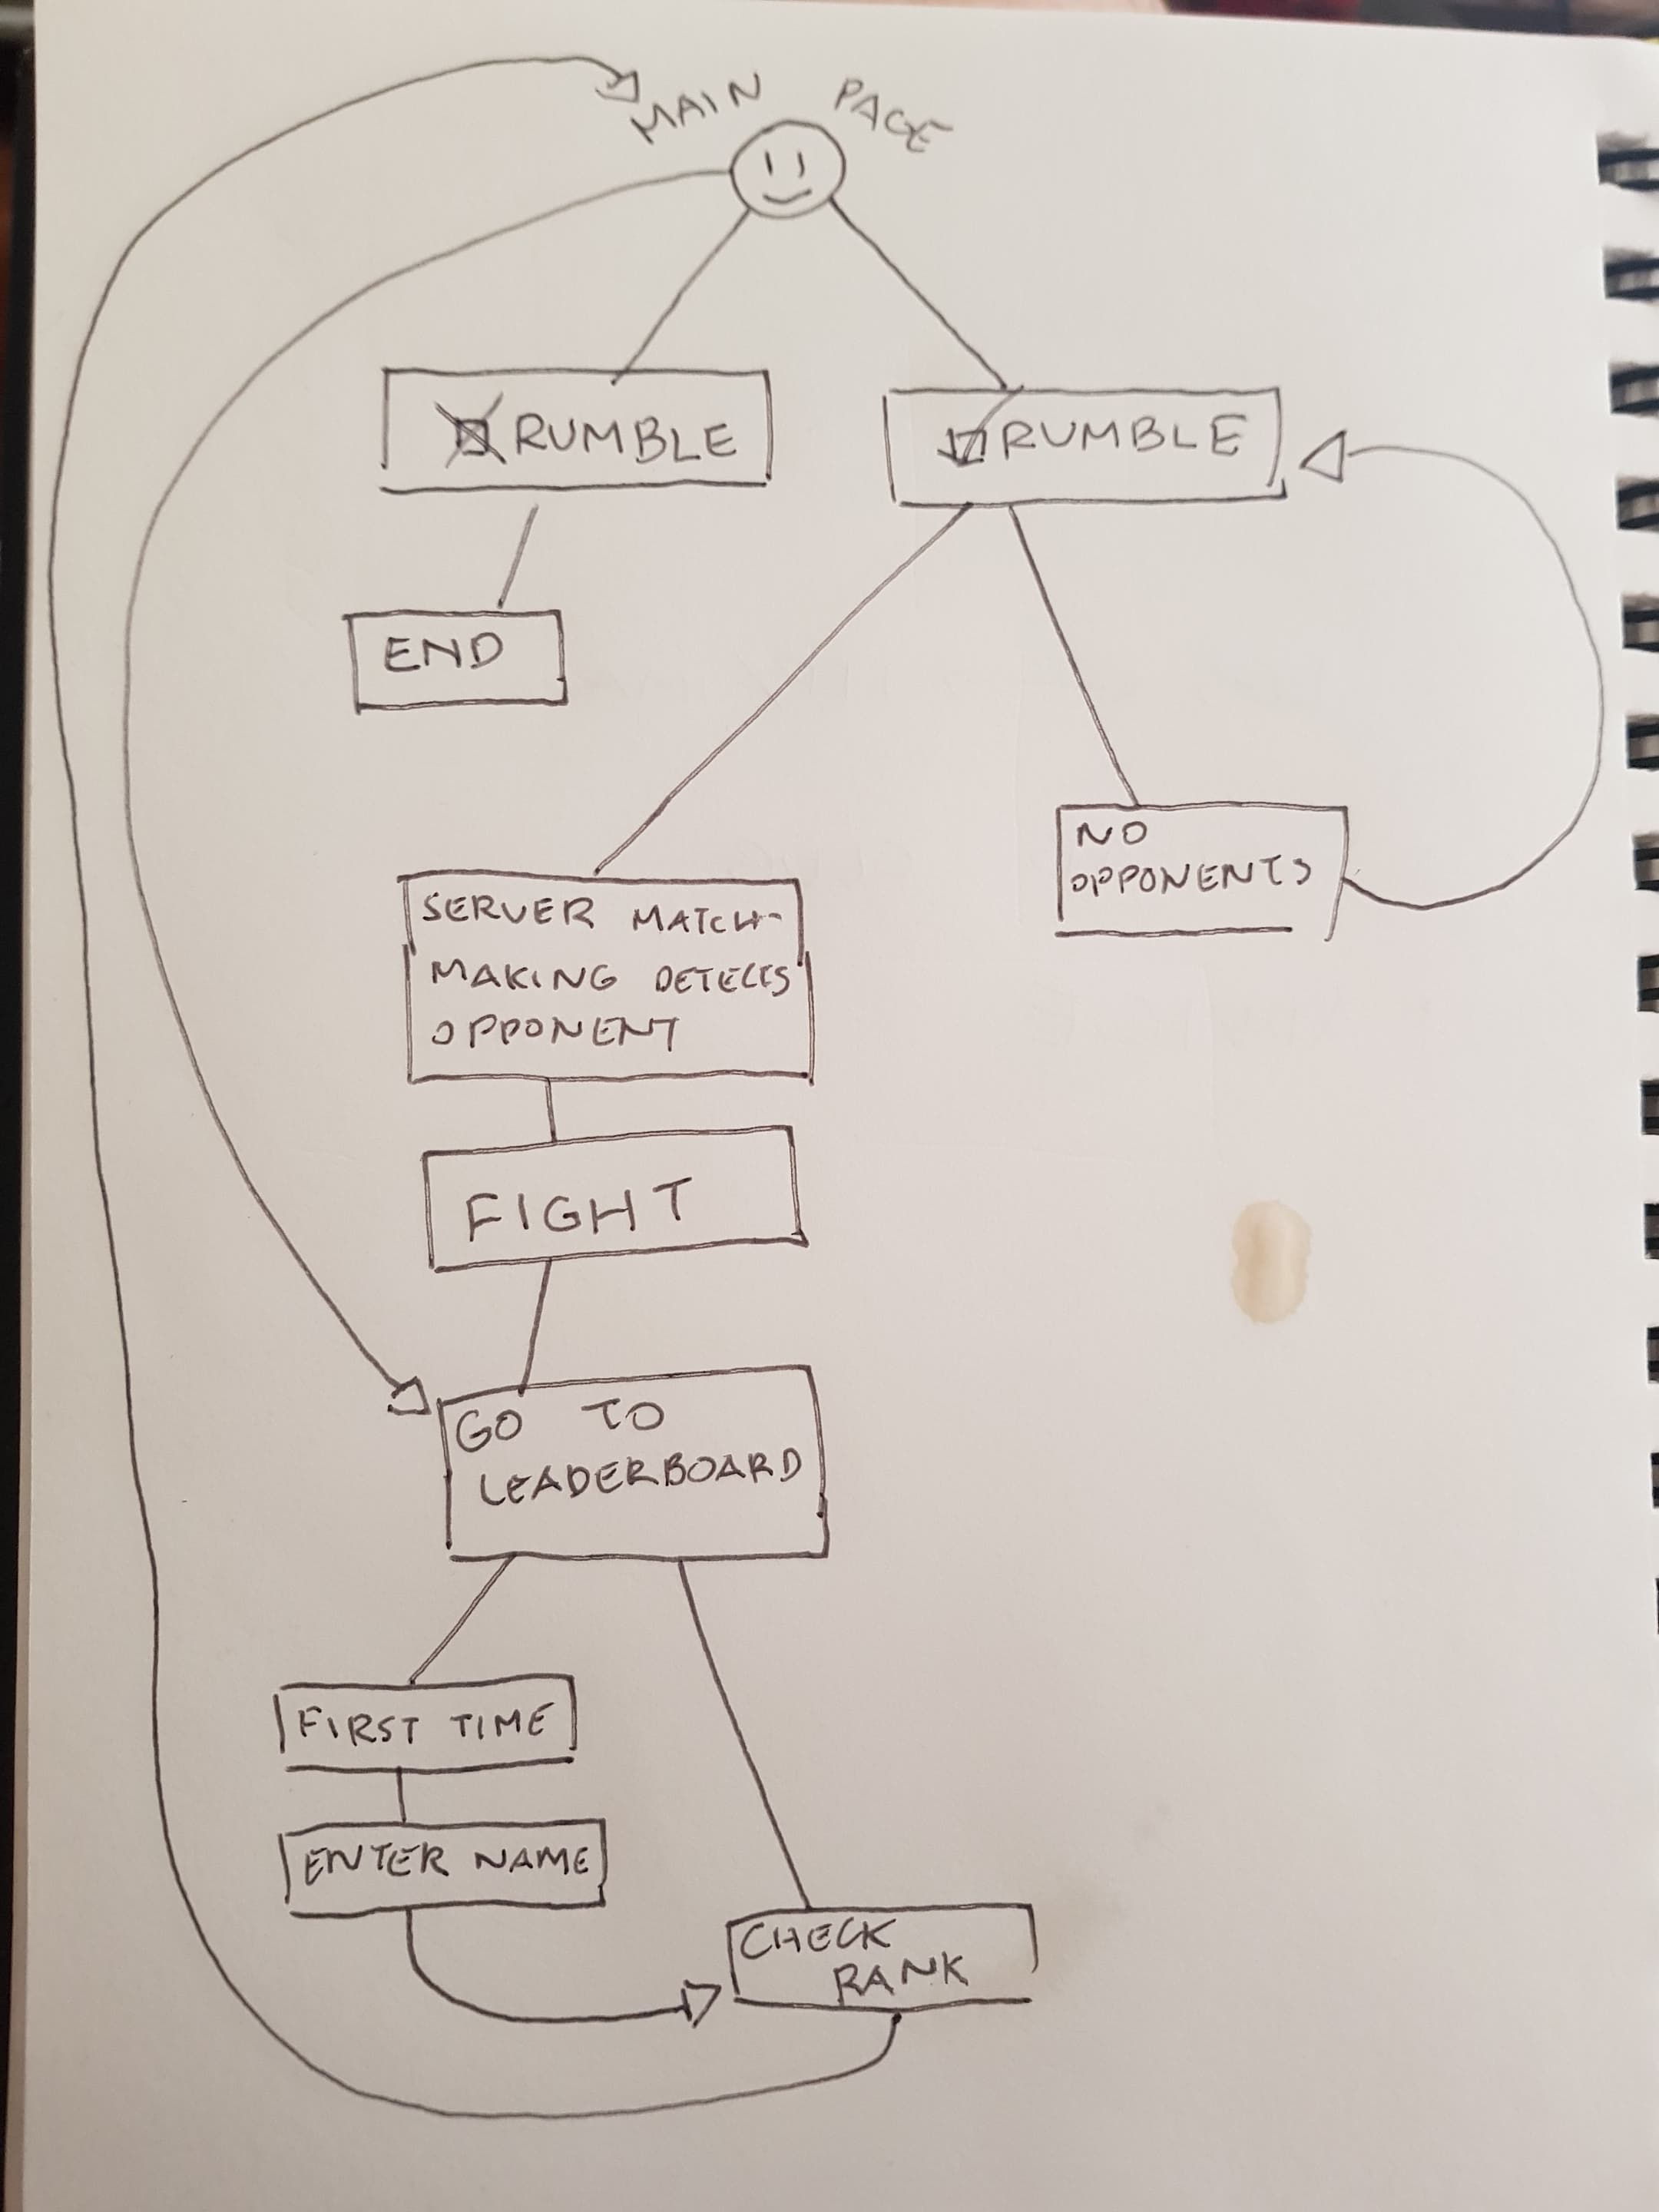 MAIN PAGE
RUMBLE
RUMBLE
END
NO
OPPONENTS
SERVER MATCH-
MAKING DETECTS
OPPONENT
FIGHT
GO TO
LEADERBOARD
FIRST TIME
ENTER NAME
CHECK
RANK